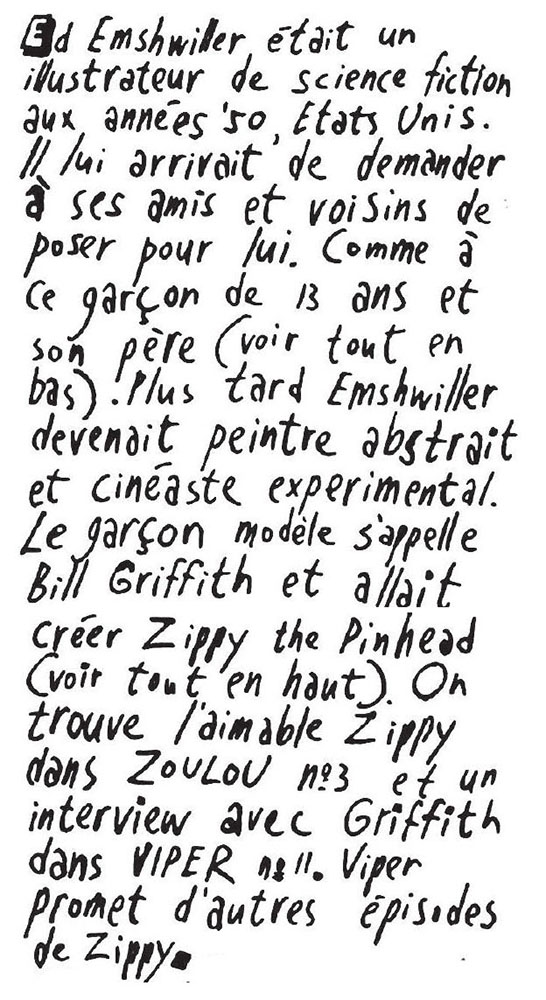 Ed Emshwiller était un
illustrateur de science fiction
aux années '50, Etats Unis.
Il lui arrivait de demander
à ses amis et voisins de
poser pour lui. Comme à
ce garçon de 13 ans et
son père (voir tout en
bas). Plus tard Emshwiller
devenait peintre abstrait
et cinéaste experimental.
Le garçon modèle s'appelle
Bill Griffith et allait
créer Zippy the Pinhead
(voir tout en haut). On
trouve l'aimable Zippy
dans ZOULOU nº3 et un
interview avec Griffith
dans VIPER nº 11. Viper
promet d'autres épisodes
de Zippy.